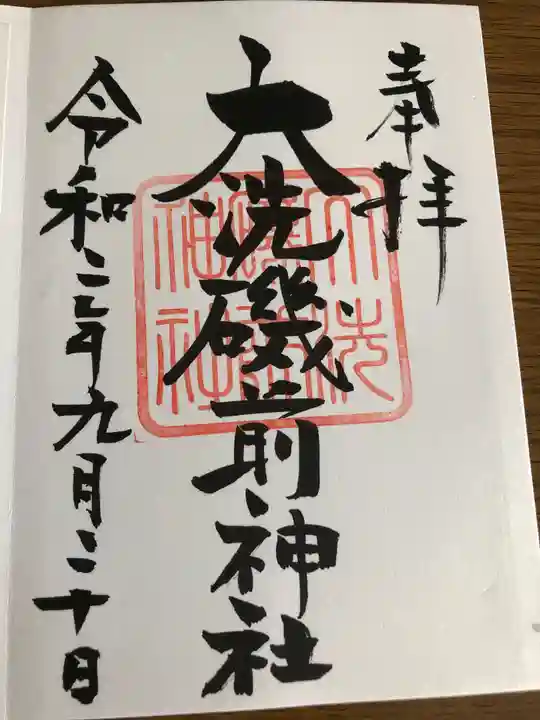 奉拝
大洗磯前神社
大洗磯前神社
令和二年九月二十日